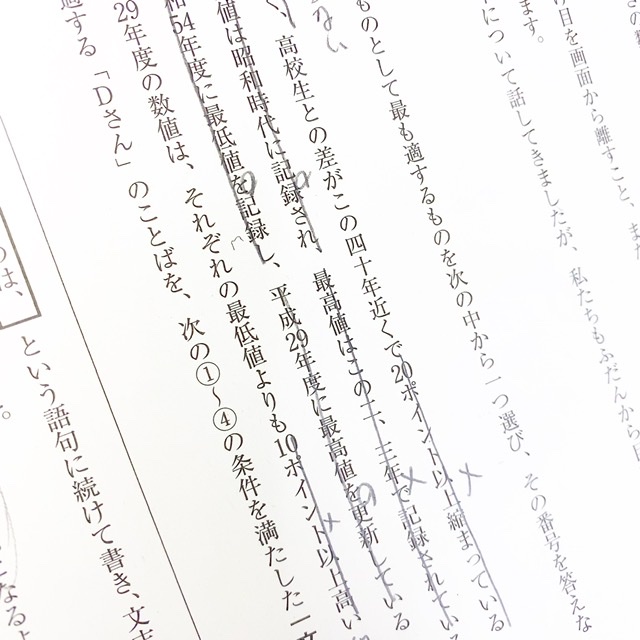 り日を画面から離すこと、また
について話してきましたが、私たちもふだんから日
ます。
ものとして最も適するものを次の中から一つ選び、その番号を答えな
ない
く、高校生との差がこの四十年近くで20ポイント以上縮まっている
値は昭和時代に記録され、最高値はこの二、三年で記録されてい
和54年度に最低値を記録し、平成29年度に最高値を更新している
29年度の数値は、それぞれの最低値よりも10ポイント以上高い
適する「Dさん」のことばを、次の①～④の条件を満たした一文
のは、
という語句に続けて書き、文末
となるよ